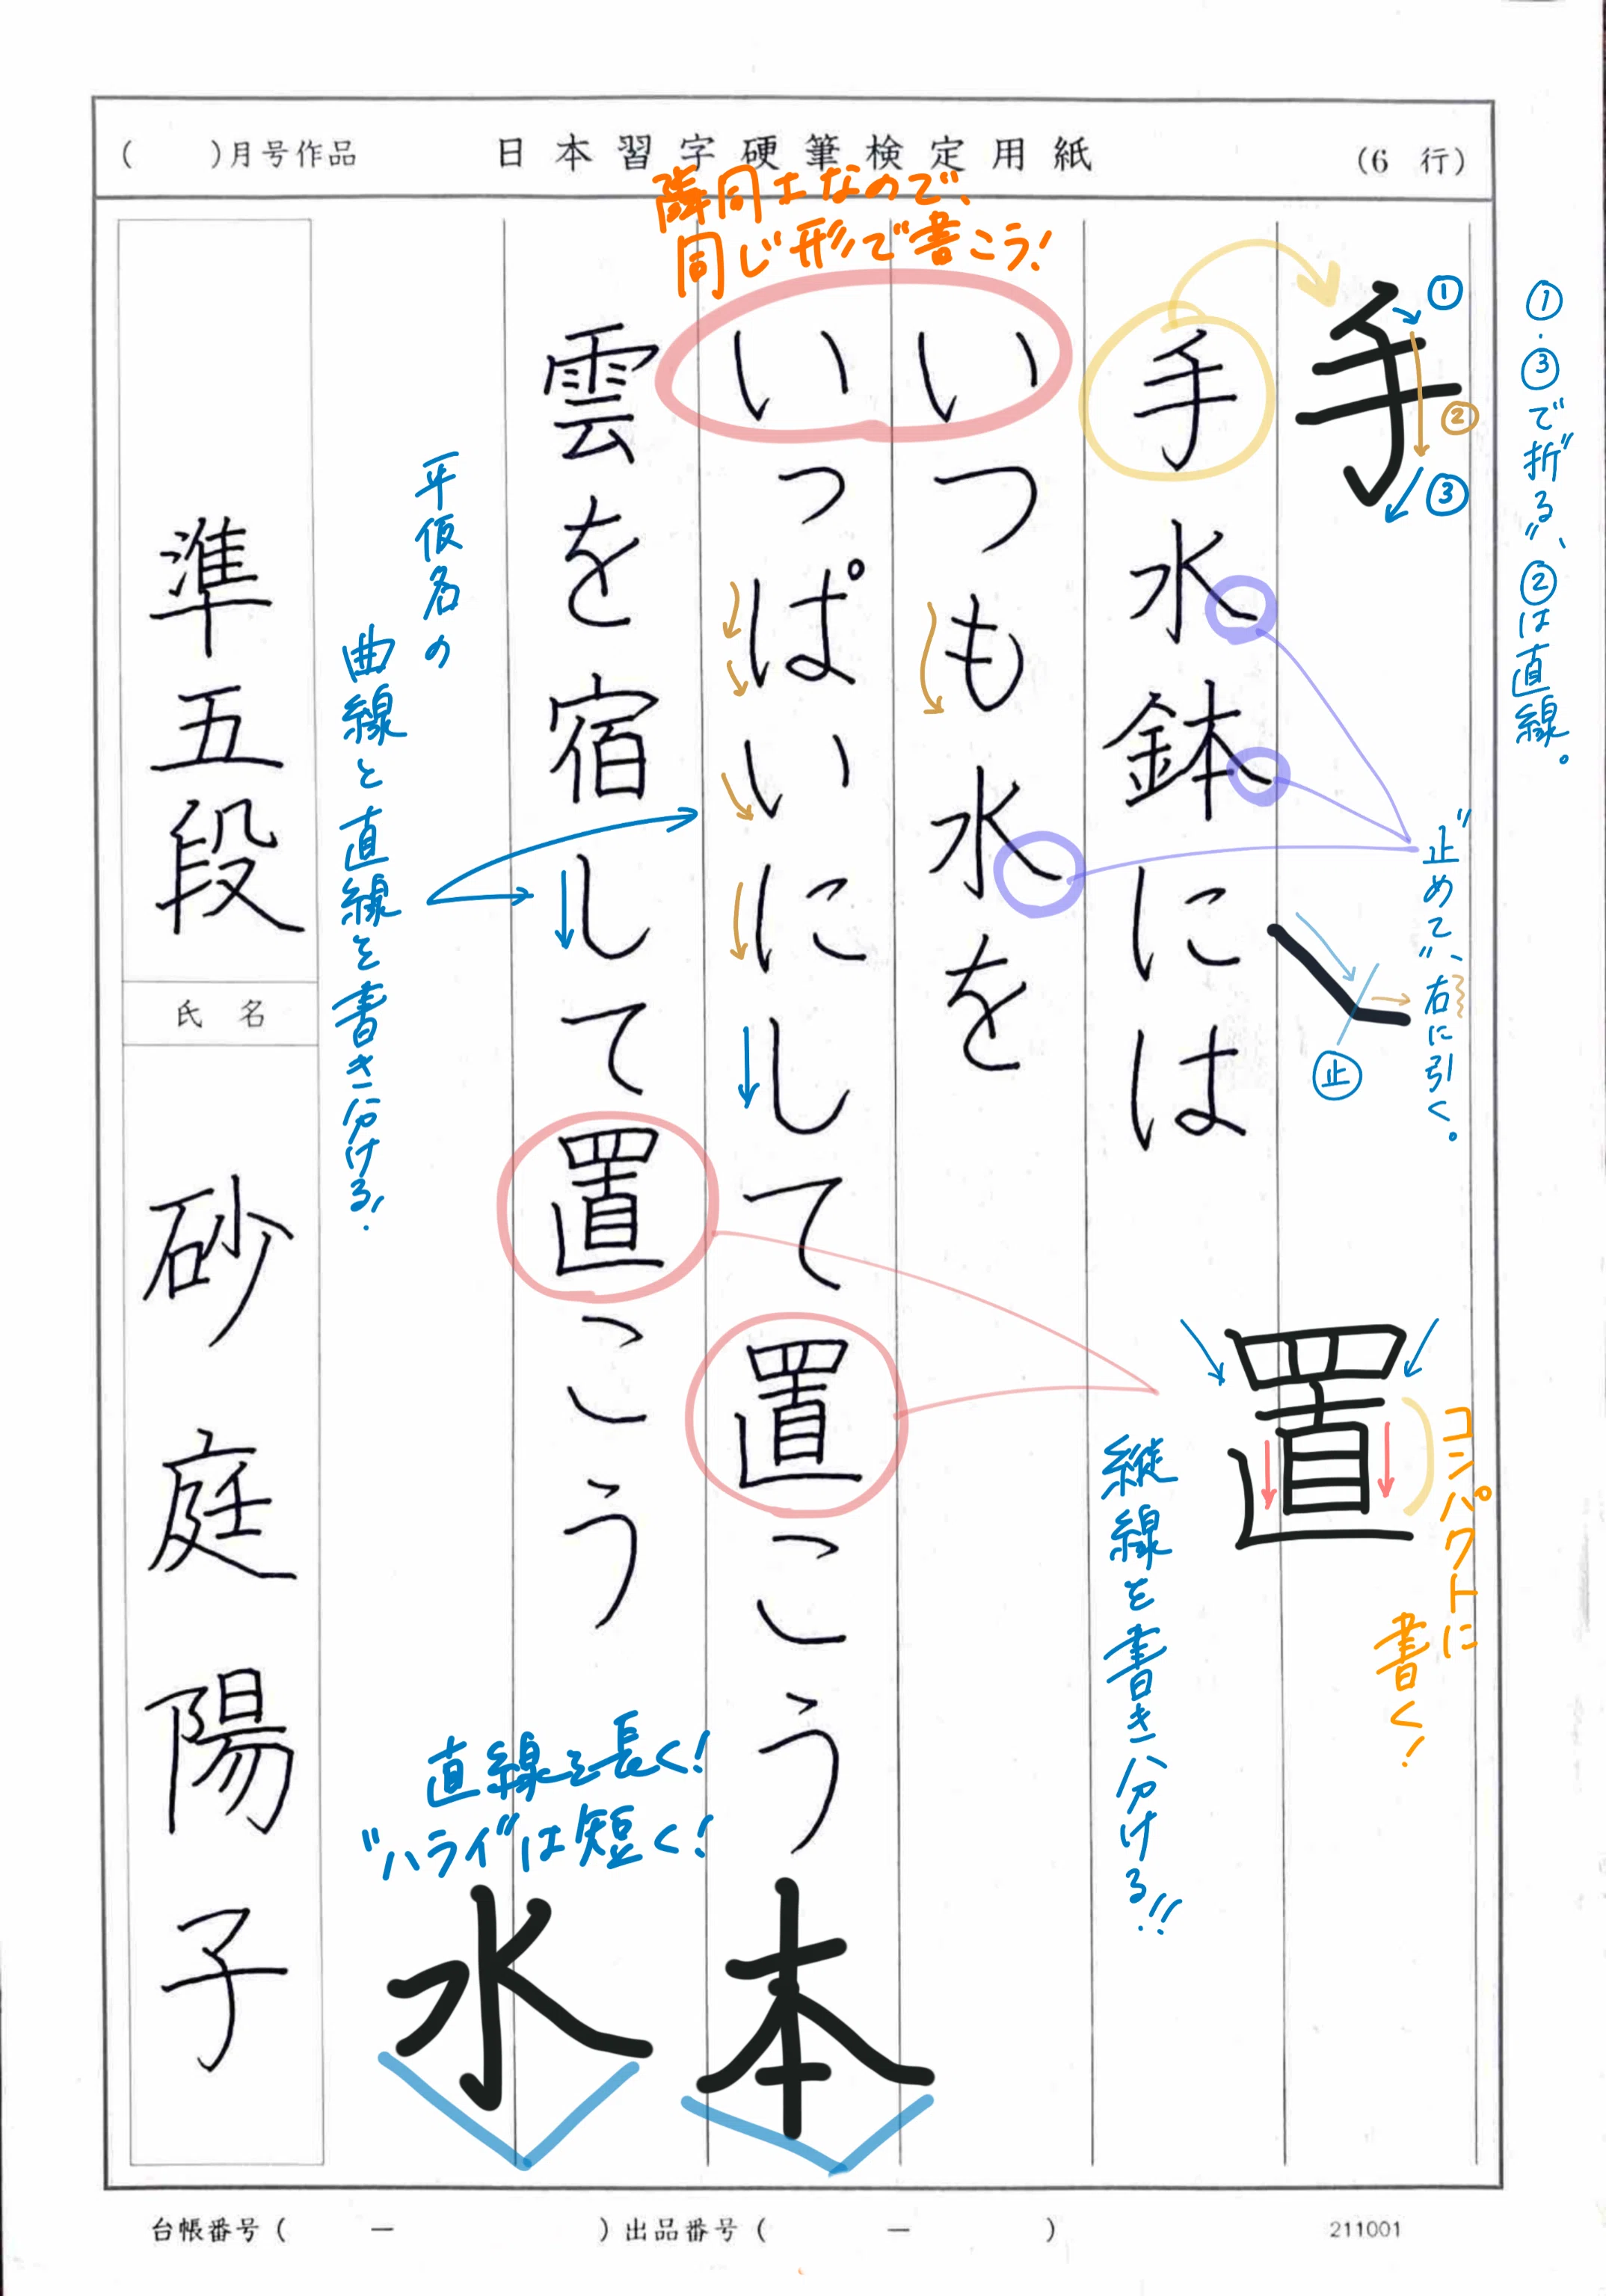 ( )月号作品 日本習字硬筆検定用紙 (6 行)
隣同士なので、
同じ形で書こう!
①・③で“折る”、②は直線。
手
①
②
③
手水鉢には
いつも水を
いっぱいにして置こう
雲を宿して置こう
“止めて”、右に引く。
止
置
コンパクトに
書く!
縦線を書き分ける!!
平仮名の
曲線と直線を書き分ける!
直線を長く!
“ハライ”は短く!
本
水
準五段
氏名
砂庭陽子
台帳番号( ー )出品番号( ー )
211001